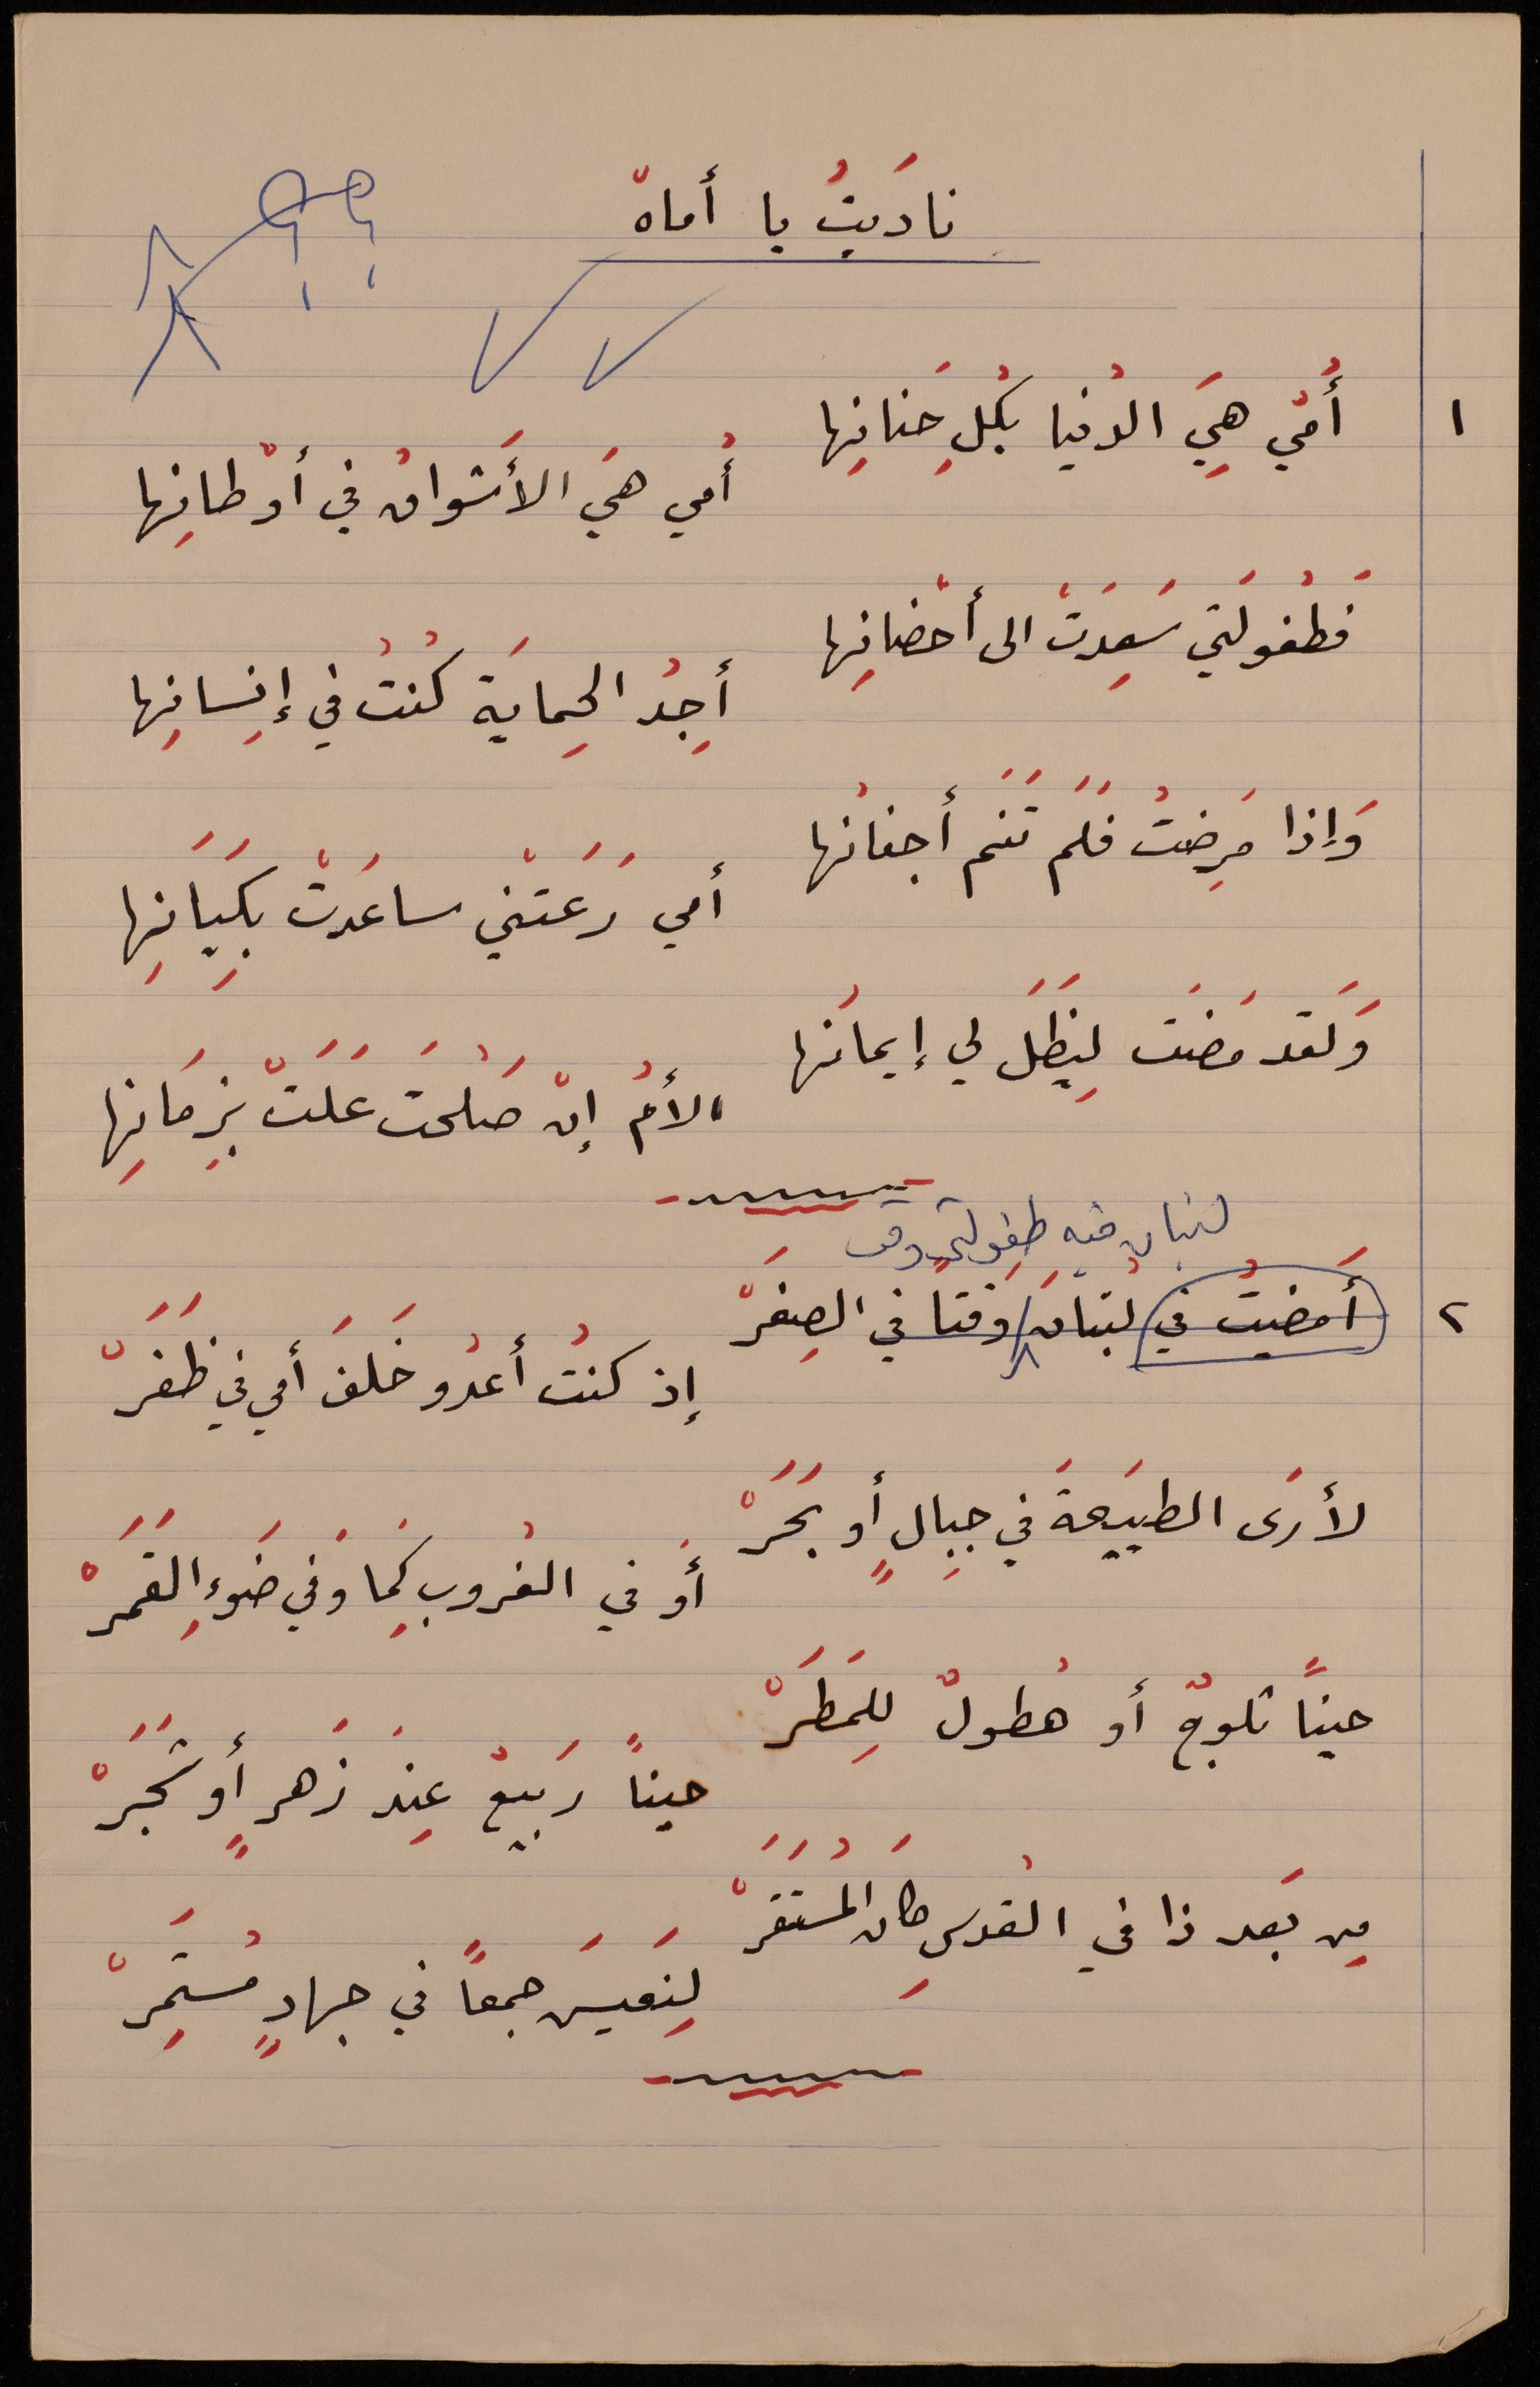 نادَيتُ يا أماهْ
١
أُمّي هِيَ الدُنيا بكُلِ حَنانِها
أُمي هيَ الأَشواقُ في أوْطانِها
فَطُفولَتي سَعِدَتْ الى أحْضانِها
أجِدُ الحِمايَة كُنتُ في إنِسانِها
وَإذا مَرِضتُ فَلَم تَنَم أجفانُها
أمي رَعَتْني ساعَدَتْ بِكَيَانِها
وَلَقد مَضَت لِيَظَلَ لي إيمانُها
الأمُ إنْ صَلُحَت عَلَتْ بِزِمَانِها
لبنان فيه طِفولَتي وقت
٢
أَمضيتُ في لُبنانَ وَقتاً في الصِغَرْ
إذ كنتُ أعدُو خَلفَ أمي في ظَفَرْ
لأرَى الطبيَعةَ في جِبالٍ أو بَحَرْ
أوَ في الغُروبِ كَما وَفي ضَوءِ القَمَرْ
حيناً ثلوجٌ أو هُطولٌ لِلمَطَرْ
حيناً رَبيعٌ عِندَ زَهرٍ أو شَجَرْ
مِن بَعد ذا في القُدسِ كانَ المُستَقَرْ
لِنَعيشَ جمعاً في جهادٍ مُستَمِرْ